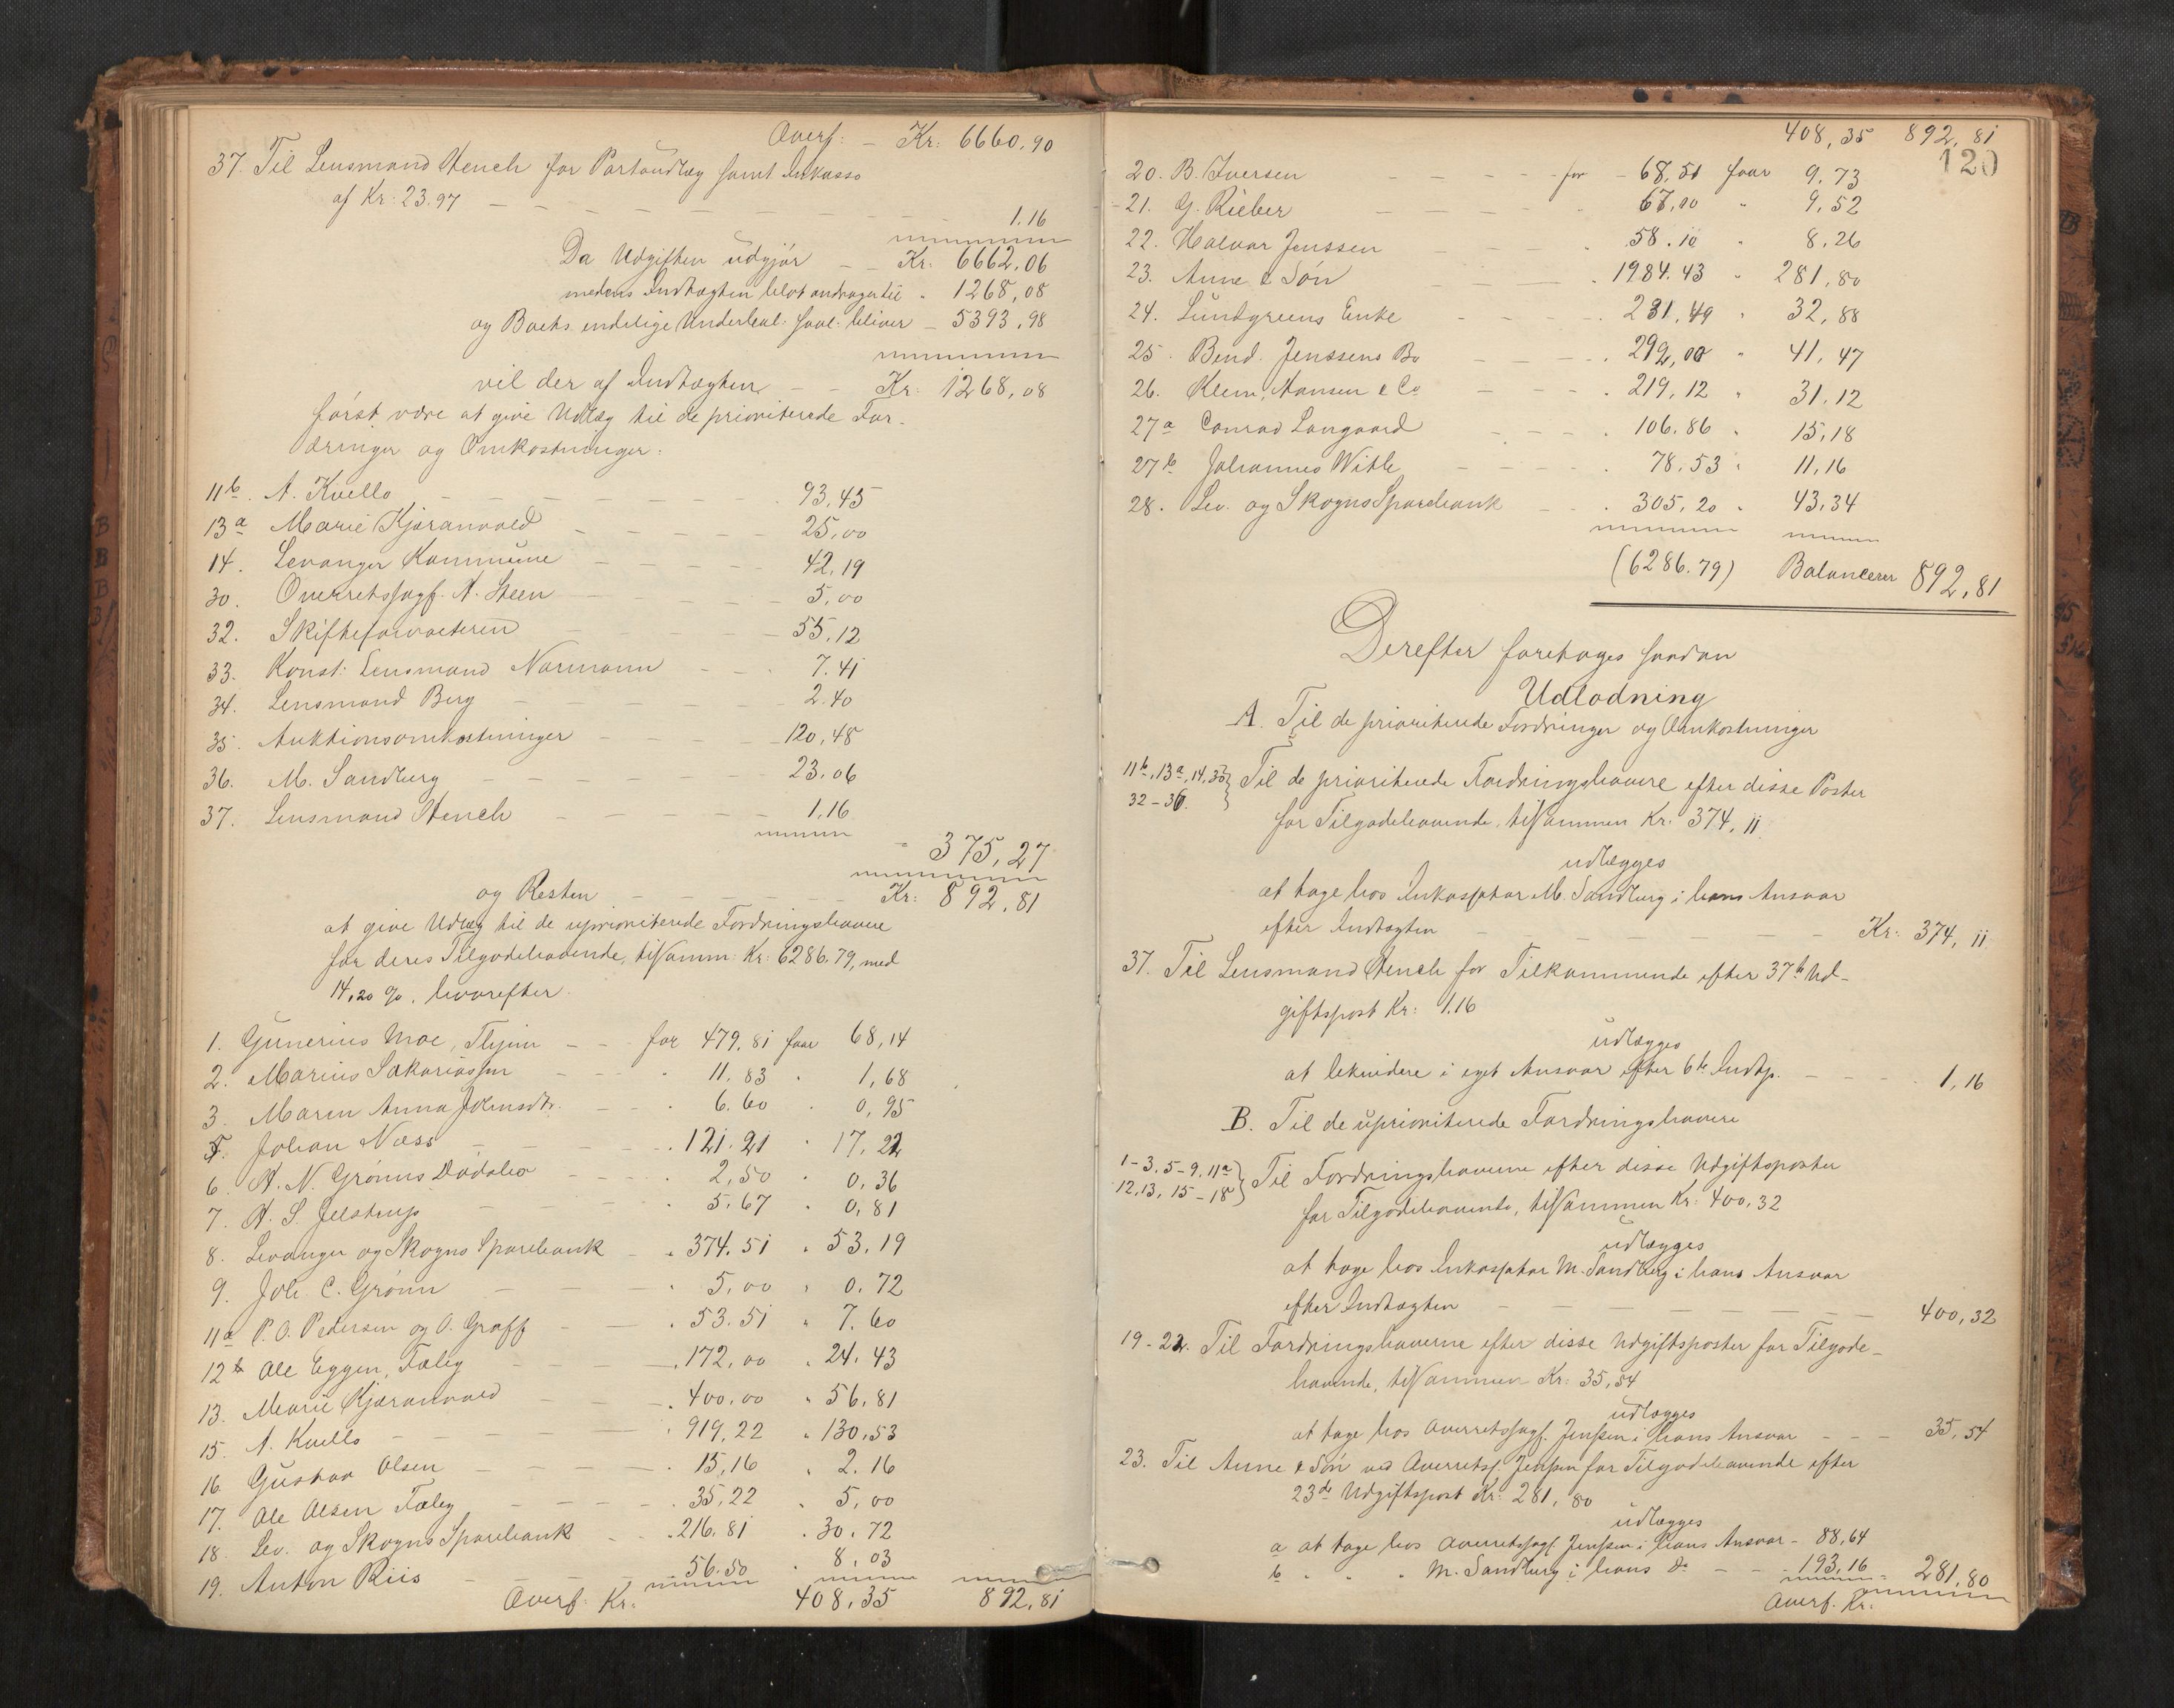 Overf: — Kr: 6660,90
37. Til Lensmand Hench for Portoudlæg samt Inkasso
af Kr: 23.97 — 1.16
Da Udgiften udgjør — Kr. 6662,06
medens Indtægten blot andrager til " 1268,08
og Boets endelige Underbal: saal: bliver — 5393,98
vil der af Indtægten — Kr. 1268,08
først være at give Udlæg til de prioriterede For-
dringer og Omkostninger:
11b. A. Kvello — 93,45
13a Marie Kjæranvold — 25,00
14. Levanger Kommune — 42,19
30. Overretssagf. N. Steen — 5,00
32. Skifteforvalteren — 55,12
33. Konst: Lensmand Normann — 7.41
34. Lensmand Berg — 2.40
35. Auktionsomkostninger — 120,48
36. M. Sandberg — 23.06
37. Lensmand Hench — 1,16
375,27
og Resten — Kr: 892,81
at give Udlæg til de uprioriterede Fordringshavere
for deres Tilgodehavende, tilsamm: Kr: 6286.79, med
14,20 %, hvorefter
1. Gunerius Moe, Thjem — for 479,81 faar 68,14
2. Marius Sakariassen — " 11.83 " 1,68
3. Maren Anna Johnsdtr. — " 6.60 " 0,95
5. Johan Næss — 121.21 " 17,22
6. A. N. Grønns Dødsbo — " 2,50 " 0,36
7. A. S. Jelstrup — " 5.67 " 0,81
8. Levanger og Skogns Sparebank — " 374.51 " 53.19
9. Joh. C. Grønn — " 5,00 " 0.72
11a P. O. Pedersen og O. Graff — " 53.51 " 7.60
12 Ole Eggen, Fæby — " 172,00 " 24.43
13. Marie Kjæranvold — " 400,00 " 56,81
15. A. Kvello — " 919,22 " 130,53
16. Gustav Olsen — " 15,16 " 2.16
17. Ole Olsen Fæby — " 35,22 " 5,00
18. Lev. og Skogns Sparebank — " 216,81 " 30,72
19. Anton Riis — 56.50 " 8,03
Overf. Kr. 408,35 892,81
408,35 892,81
120
20. B. Iversen — for — 68,51 faar 9,73
21. G. Rieber — " 67,00 " 9,52
22. Halvar Jenssen — " 58.10 " 8,26
23. Aune & Søn — " 1984.43 " 281,80
24. Lundgreens Enke — " 231,49 " 32,88
25. Bend. Jenssens Bo — " 292,00 " 41,47
26. Klem, Hansen & Co — " 219,12 " 31,12
27a Conrad Langaard — " 106.86 " 15,18
27b Johannes With — " 78.53 " 11,16
28. Lev. og Skogns Sparebank — " 305,20 " 43,34
(6286.79) Balancerer 892,81
Derefter foretages saadan
Udlodning
A. Til de prioriterede Fordringer og Omkostninger
11b, 13a, 14, 30 Til de prioriterede Fordringshavere efter disse Poster
32-36. for Tilgodehavende, tilsammen Kr. 374,11
udlægges
at tage hos Inkassator M. Sandberg i hans Ansvar
efter Indtægten — Kr: 374,11
37. Til Lensmand Hench for Tilkommende efter 37te Ud-
giftspost Kr: 1.16
udlægges
at likvidere i eget Ansvar efter 6te Indtp. — 1,16
B. Til de uprioriterede Fordringshavere
1-3, 5-9, 11a Til Fordringshaverne efter disse Udgiftsposter
12, 13, 15-18 for Tilgodehavende, tilsammen Kr: 400,32
udlægges
at tage hos Inkassator M. Sandberg i hans Ansvar
efter Indtægten — 400,32
19-22. Til Fordringshaverne efter disse Udgiftsposter for Tilgode-
havende, tilsammen Kr: 35,54
udlægges
at tage hos Overretssagf. Jenssen i hans Ansvar — 35,54
23. Til Aune & Søn ved Overretss. Jenssen for Tilgodehavende efter
23de Udgiftspost Kr: 281,80
udlægges
a at tage hos Overretssagf. Jenssen i hans Ansvar — 88,64
b " " " M. Sandberg i hans Do — 193,16 281,80
Overf. Kr.